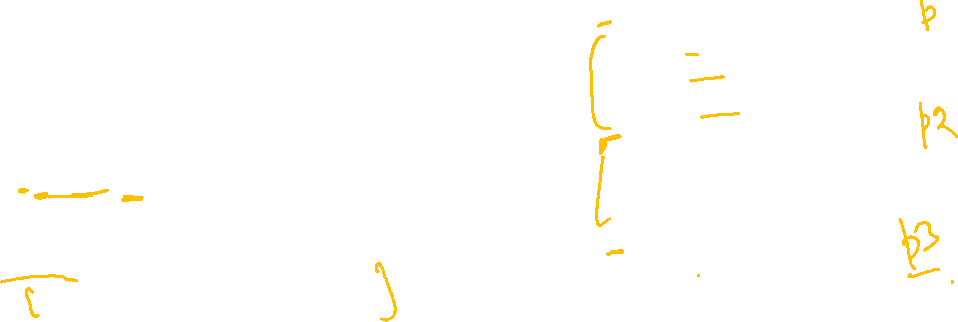 p
p2
p3